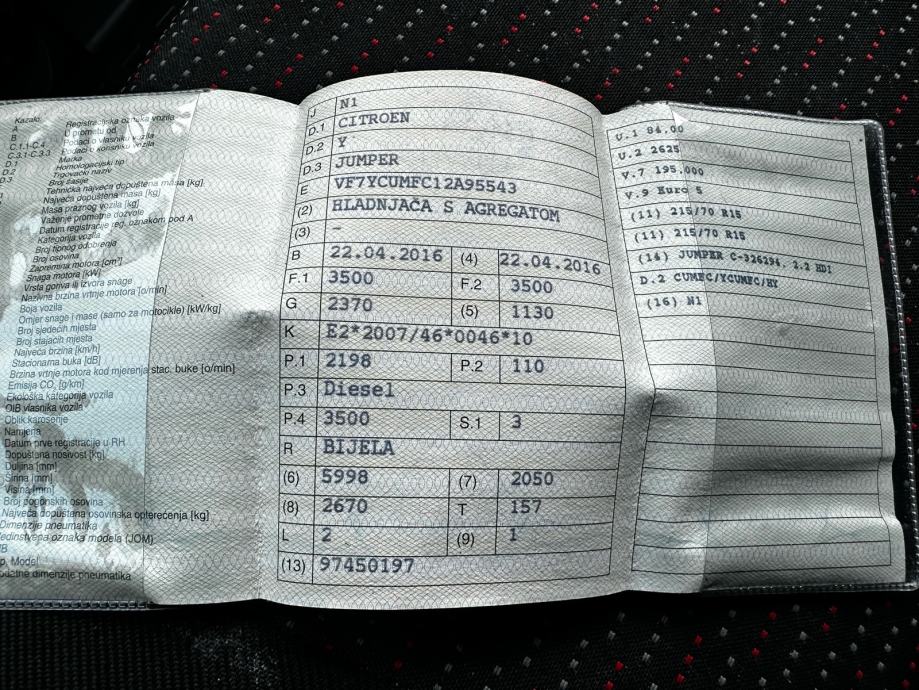 Kazalo:
A Registracijska oznaka vozila
B U prometu od
C.1.1-C.4 Podaci o vlasniku vozila
C.3.1-C.3.3 Podaci o korisniku vozila
D.1 Marka
D.2 Homologacijski tip
D.3 Trgovački naziv
Broj šasije
Tehnička najveća dopuštena masa [kg]
Najveća dopuštena masa [kg]
Masa praznog vozila [kg]
Važenje prometne dozvole
Datum registracije reg. oznakom pod A
Kategorija vozila
Broj tipnog odobrenja
Broj osovina
Zapremina motora [cm³]
Snaga motora [kW]
Vrsta goriva ili izvora snage
Nazivna brzina vrtnje motora [o/min]
Boja vozila
Omjer snage i mase (samo za motocikle) [kW/kg]
Broj sjedećih mjesta
Broj stajaćih mjesta
Najveća brzina [km/h]
Stacionarna buka [dB]
Brzina vrtnje motora kod mjerenja stac. buke [o/min]
Emisija CO₂ [g/km]
Ekološka kategorija vozila
OIB vlasnika vozila
Oblik karoserije
Namjena
Datum prve registracije u RH
Dopuštena nosivost [kg]
Duljina [mm]
Širina [mm]
Visina [mm]
Broj pogonskih osovina
Najveća dopuštena osovinska opterećenja [kg]
Dimenzije pneumatika
Jedinstvena oznaka modela (JOM)
Model
dodatne dimenzije pneumatika
J N1
D.1 CITROEN
D.2 Y
D.3 JUMPER
E VF7YCUMFC12A95543
(2) HLADNJAČA S AGREGATOM
(3) -
B 22.04.2016 (4) 22.04.2016
F.1 3500 F.2 3500
G 2370 (5) 1130
K E2*2007/46*0046*10
P.1 2198 P.2 110
P.3 Diesel
P.4 3500 S.1 3
R BIJELA
(6) 5998 (7) 2050
(8) 2670 T 157
L 2 (9) 1
(13) 97450197
U.1 84.00
U.2 2625
V.7 195.000
V.9 Euro 5
(11) 215/70 R15
(11) 215/70 R15
(14) JUMPER C-326294, 2.2 HDI
D.2 CUMFC/YCUMFC/HY
(16) N1